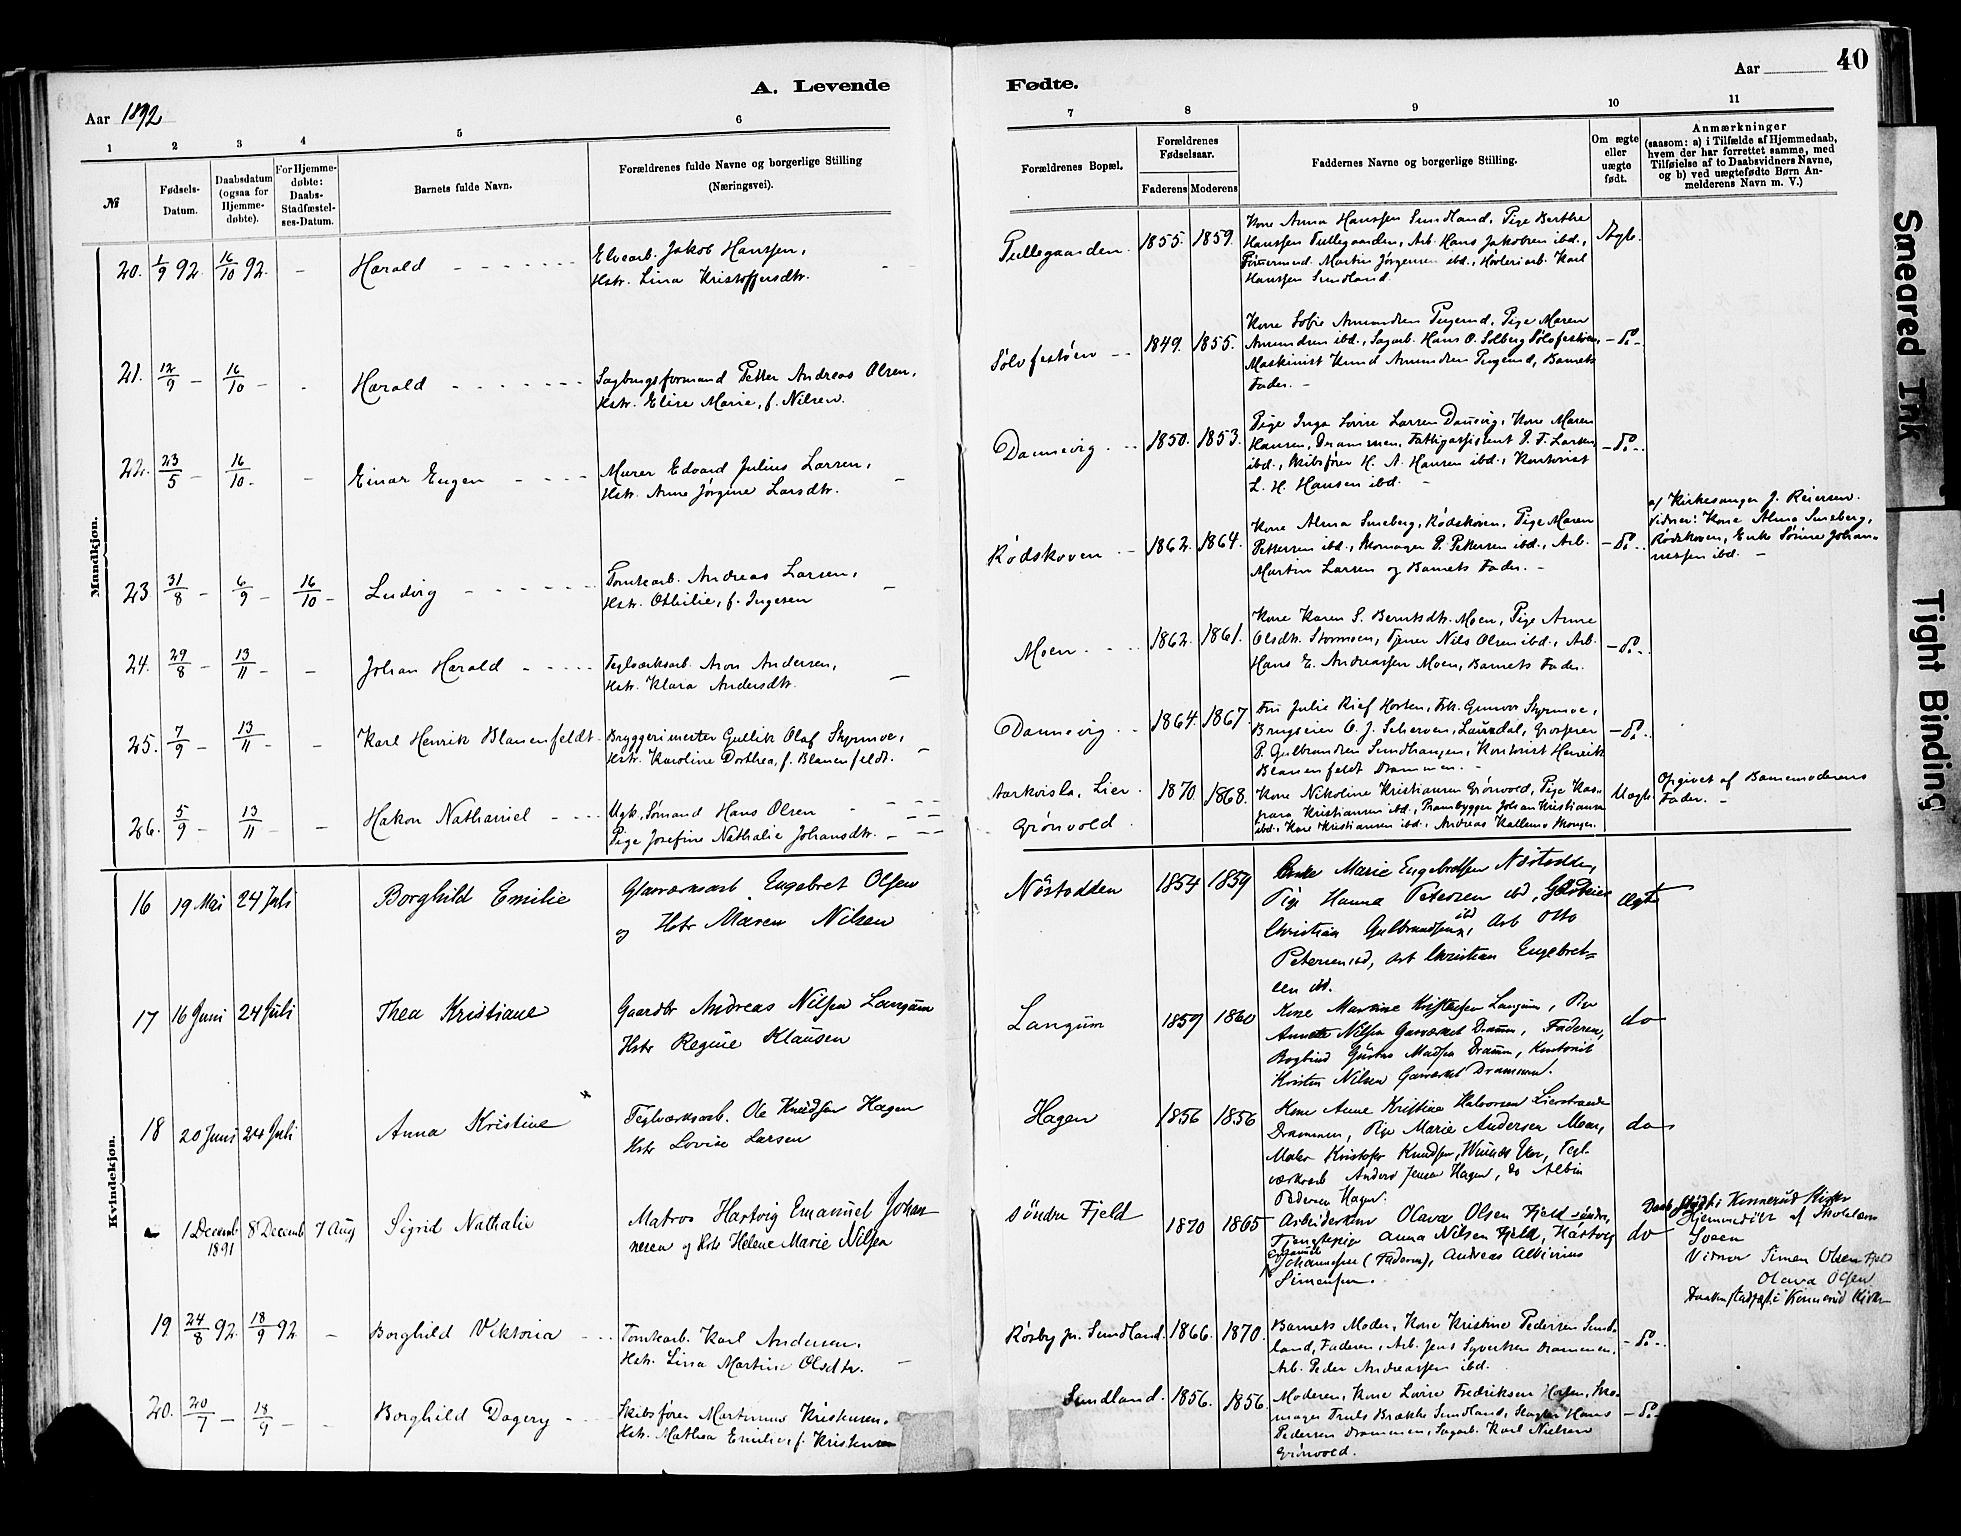 A. Levende
Fødte.
Aar 1892
Aar
40
1 2 3 4 5 6
7 8 9 10 11
№
Fødsels-Datum.
Daabsdatum (ogsaa for Hjemme-døbte).
For Hjemme-døbte: Daabs-Stadfæstel-ses-Datum.
Barnets fulde Navn.
Forældrenes fulde Navne og borgerlige Stilling
(Næringsvei).
Forældrenes Bopæl.
Forældrenes Fødselsaar.
Faderens Moderens
Faddernes Navne og borgerlige Stilling.
Om ægte eller uægte født.
Anmærkninger
(saasom: a) i Tilfælde af Hjemmedaab,
hvem der har forrettet samme, med
Tilføielse af to Daabsvidners Navne,
og b) ved uægtefødte Børn An-
melderens Navn m. V.)
Mandkjøn.
20. 1/9 92. 16/10 92. - Harald
Elvearb. Jakob Hanssen,
Hstr. Lina Kristoffersdtr.
Tullegaarden. 1855. 1859.
Kone Anna Hanssen Sundland, Pige Berthe
Hanssen Tullegaarden, Arb. Hans Jakobsen ibd.,
Tømermd. Martin Jørgensen ibd., Høvleriarb. Karl
Hanssen Sundland.
Ægte.
21. 12/9 - 16/10 - - Harald
Sagbrugsformand Petter Andreas Olsen,
Hstr. Elise Marie, f. Nilsen.
Sølvfestøen 1849. 1855.
Kone Sofie Amundsen Tegend, Pige Maren
Amundsen ibd., Sagarb. Hans O. Solberg Sølvfestøen,
Maskinist Knud Amundsen Tegend, Barnets
Fader. -
- do -
22. 23/5 - 16/10 - - Einar Eugen
Murer Edvard Julius Larsen,
Hstr. Anne Jørgine Larsdtr.
Damsvig. 1850. 1853.
Pige Inga Lovise Larsen Damsvig, Kone Maren
Hansen, Drammen, Fattigassistent P. T. Larsen
ibd., Skibsfører H. A. Hansen ibd., Kontorist
L. H. Hansen ibd. -
- do -
23 31/8 - 6/9 - 16/10 - Ludvig
Tomtearb. Andreas Larsen,
Hstr. Othilie, f. Ingesen
Rødskoven 1862. 1864.
Kone Alma Smeberg, Rødskoven, Pige Maren
Pettersen ibd., Skomager P. Pettersen ibd., Arb.
Martin Larsen og Barnets Fader. -
- do -
af Kirkesanger J. Reiersen.
Vidner: Kone Alma Smeberg,
Rødskoven, Enke Sørine Johan-
nessen ibd. -
24. 29/8 - 13/11 - - Johan Harald
Teglværksarb. Aron Andersen,
Hstr. Klara Andersdtr.
Moen. 1862. 1861.
Kone Karen S. Berntsdtr. Moen, Pige Anne
Olsdtr. Stormoen, Tjener Nils Olsen ibd., Arb.
Hans E. Andreassen Moen, Barnets Fader.
- do -
25. 7/9 - 13/11 - - Karl Henrik Blauenfeldt
Bryggerimester Gullik Olaf Skyrmoe,
Hstr. Karoline Dorthea, f. Blauenfeldt.
Damsvig 1864. 1867.
Fru Julie Horten, Frk. Gunvor Skyrmoe,
Brugseier O. J. Scherven, Grosserer
P. Gulbrandsen Sundhaugen, Kontorist Henrik
Blauenfeldt Drammen. -
- do -
26. 5/9 - 13/11 - - Hakon Nathaniel
Ugk. Sømand Hans Olsen
Pige Josefine Nathalie Johansdtr.
Aarkvisla, Lier.
Grønvold. 1870 1868.
Kone Nikoline Kristiansen Grønvold, Pige Kas-
para Kristiansen ibd., Prambygger Johan Kristiansen
ibd., Kone Kristiansen ibd., Andreas
Uægte.
Opgivet af Barnemoderens
Fader. -
Kvindekjøn.
16 19 Mai 24 Juli Borghild Emilie
Glasværksarb Engebret Olsen
og Hstr Maren Nilsen
Nøstodden 1854 1859
Enke Marie Engebretsen Nøstodden,
Pige Hanna Petersen ibd,
Christian Gulbrandsen ibd, Arb Otto
Petersen ibd, Arb Christian Engebret-
sen ibd.
Ægte
17 16 Juni 24 Juli Thea Kristiane
Gaardbr Andreas Nilsen Langum
Hstr Regine Klausen
Langum 1859 1860
Kone Martine Kristensen Langum, Pige
Annette Nilsen Drammen, Faderen,
Bogbind Gustav Madsen Drammen, Kontorist
Kristen Nilsen Drammen.
do
18 20 Juni 24 Juli Anna Kristine
Teglværksarb. Ole Knudsen Hagen
Hstr Lovise Larsen
Hagen 1856 1856
Kone Anne Kristine Halvorsen Lierstrand
Drammen, Pige Marie Andersen Moen,
Maler Kristoffer Knudsen, Tegl-
værksarb Anders Jensen Hagen, do Albin
Pedersen Hagen.
do
- 1 Decemb 1891 8 Decemb 7 Aug Sigrid Nathalie
Matros Hartvig Emanuel Johan-
nesen og Hstr Helene Marie Nilsen
Søndre Fjeld 1870 1865
Arbeiderkone Olava Olsen Fjeld søndre,
Tjenestepige Anna Nilsen Fjeld, Hartvig
Emanuel Johannesen (Faderen), Andreas Albinius
Simensen.
do
Daab stadf. i Konnerud Kirke
Hjemmedøbt af Skolelærer
Sveen
Vidner Simen Olsen Fjeld
Olava Olsen
Daaben stadfæst i Konnerud Kirke
19 24/8 92. 18/9 92. - Borghild Viktoria
Tomtearb. Karl Andersen,
Hstr. Lina Martine Olsdtr.
Rosby pr. Sundland. 1866. 1870.
Barnets Moder, Kone Kristine Pedersen Sund-
land, Faderen, Arb. Jens Syvertsen Drammen,
Arb. Peder Andreassen ibd.
- do -
20. 20/7 - 18/9 - - Borghild Dagny
Skibsfører Martinius Kristensen,
Hstr. Mathea Emilie, f. Kristensen
Sundland. 1856. 1856.
Moderen, Kone Lovise Fredriksen Horten, Sko-
mager Truls Brække Sundland, Slagter Hans
Pedersen Drammen, Sagarb. Karl Nielsen
Grønvold.
- do -
Smeared Ink
Tight Binding